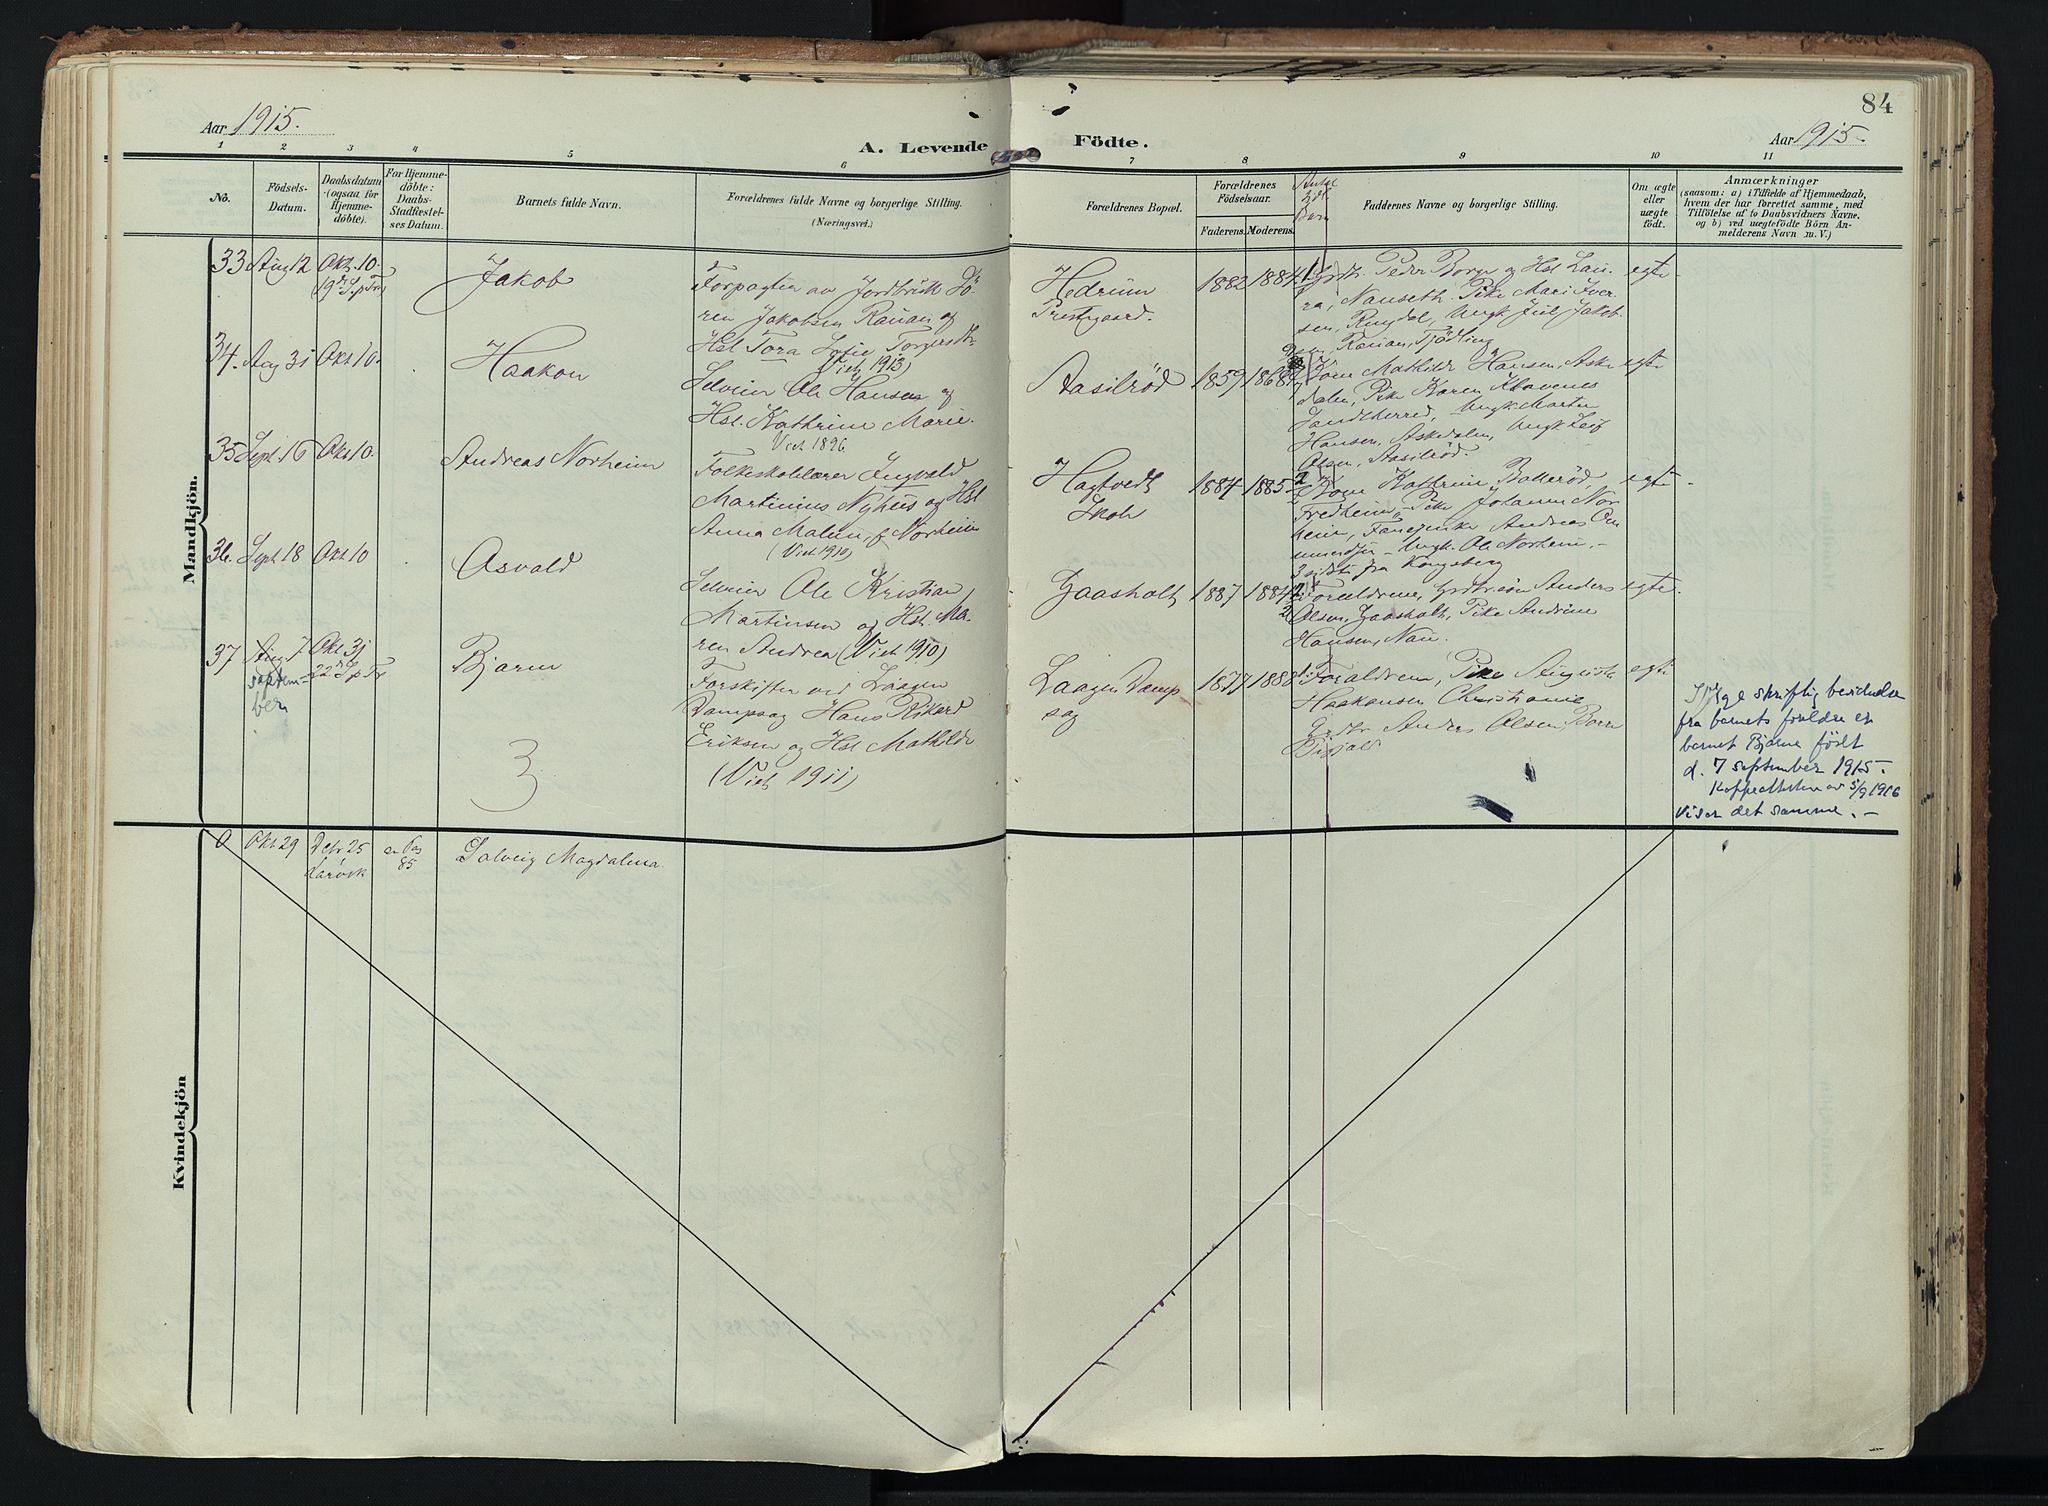 84
Aar 1915.
A. Levende Födte.
Aar 1915.
1 2 3 4 5 6 7 8 9 10 11
No.
Födsels-
Datum.
Daabsdatum
(ogsaa for
Hjemme-
döbte).
For Hjemme-
döbte:
Daabs-
Stadfæstel-
ses Datum.
Barnets fulde Navn.
Forældrenes fulde Navne og borgerlige Stilling.
(Næringsvei.)
Forældrenes Bopæl.
Forældrenes
Födselsaar.
Faderens. Moderens.
Faddernes Navne og borgerlige Stilling.
Om ægte
eller
uægte
födt.
Anmærkninger
(saasom: a) i Tilfælde af Hjemmedaab,
hvem der har forrettet samme, med
Tilföielse af to Daabsvidners Navne,
og b) ved uægtefödte Börn An-
melderens Navn m. V.)
Mandkjön.
33 Aug 12 Okt. 10.
Jakob
Forpagter av Jordbruk Sö-
ren Jakobsen Rauan og
Hst. Tora Sofie
(Viet 1913)
Hedrum
Prestegaard.
1882 1884
Peder Borge og Hst. Lau-
ra, Nanseth. Pike Mari Iver-
sen, Ringdal, Ungk. Juel Jakob-
sen, Rauan, Tjödling
egte
34. Aug 31 Okt 10.
Haakon
Selveier Ole Hansen og
Hst. Kathrine Marie.
Viet 1896
Aasilröd
1859 1868
Kone Mathilde Hansen, Aske-
dalen, Pike Karen Klavenes
Sandeherred, Ungk. Martin
Hansen, Askedalen, Ungk. Leif
Olsen, Aasilröd.
egte
35 Sept. 16 Okt 10.
Andreas Norheim
Folkeskolelærer Ingvald
Martinius Nyhus og Hst
Anna Malen, f. Norheim
(Viet 1910)
Hagtvedt
Skole
1884 1885
Kone Kathrine Bakkeröd,
Fredheim, Pike Johanne Nor-
heim, Andreas
Ungk. Ole Norheim, -
3 sidste fra Kongsberg
egte
36. Sept 18 Okt 10
Asvald
Selveier Ole Kristian
Martinsen og Hst. Ma-
ren Andrea (Viet 1910)
Gaasholt
1887 1884
Forældrene, Anders
Olsen, Gaasholt, Pike Andrine
Hansen, Nau.
egte.
37 Aug 7 Okt 31
septem-
ber
22de S. p. Tr.
Bjarne
Forskifter ved Laagen
Dampsag Hans Rikard
Eriksen og Hst Mathilde
(Viet 1911)
3
Laagen Damp
sag
1877 1888
Forældrene, Pike Auguste
Haakonsen Christiania
Anders Olsen,
egte
Ifølge skriftlig bevidnelse
fra barnets foreldre er
barnet Bjarne født
d. 7 september 1915.
Koppeattesten av 5/9 1916
viser det samme. -
Kvindekjön
0 Okt 29 Debr 25
Larvik
85
Solveig Magdalena.